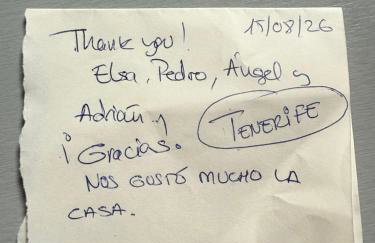 Thank you! 15/08/26
Elsa, Pedro, Ángel y
Adrián.
TENERIFE
¡Gracias.
NOS GUSTÓ MUCHO LA
CASA.